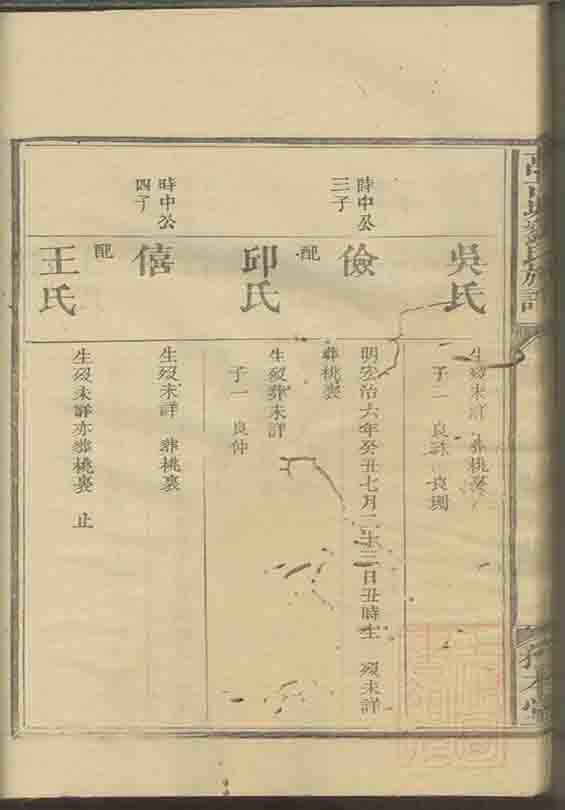 吳氏
生歿未詳 葬桃裏
子二 良
時中公
三子
儉
明宏治六年癸丑七月二十三日丑時生 歿未詳
葬桃裏
配
邱氏
生歿葬未詳
子一 良仲
時中公
四子
僖
生歿未詳 葬桃裏
配
王氏
生歿未詳亦葬桃裏 止
氏族譜